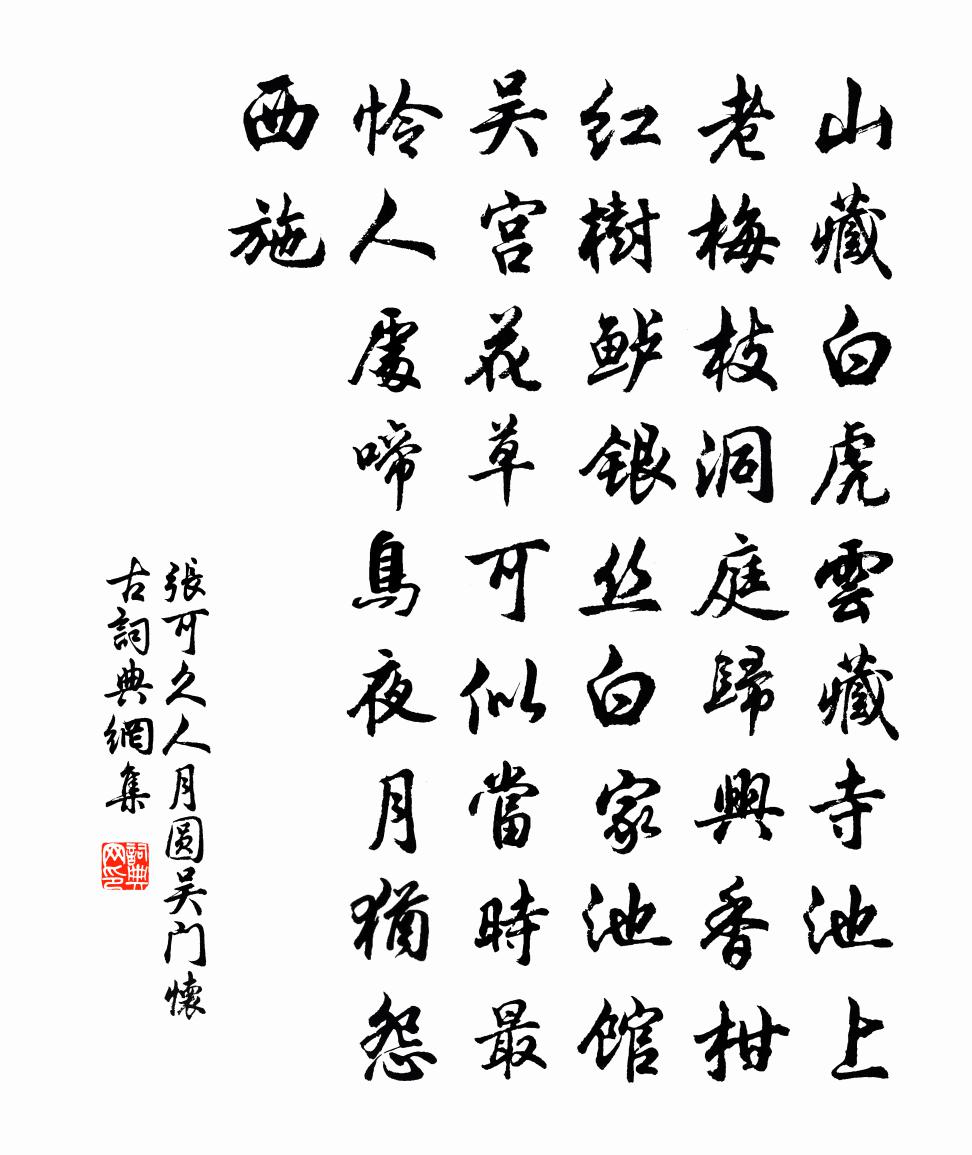 山藏白虎雲藏寺池上
老梅枝洞庭歸興香柑
红樹鲈银丝白家池馆
吴宫花草可似當時最
怜人處啼鳥夜月猶怨
西施
張可久人月圆吴门懷
古詞典網集
詞典网印